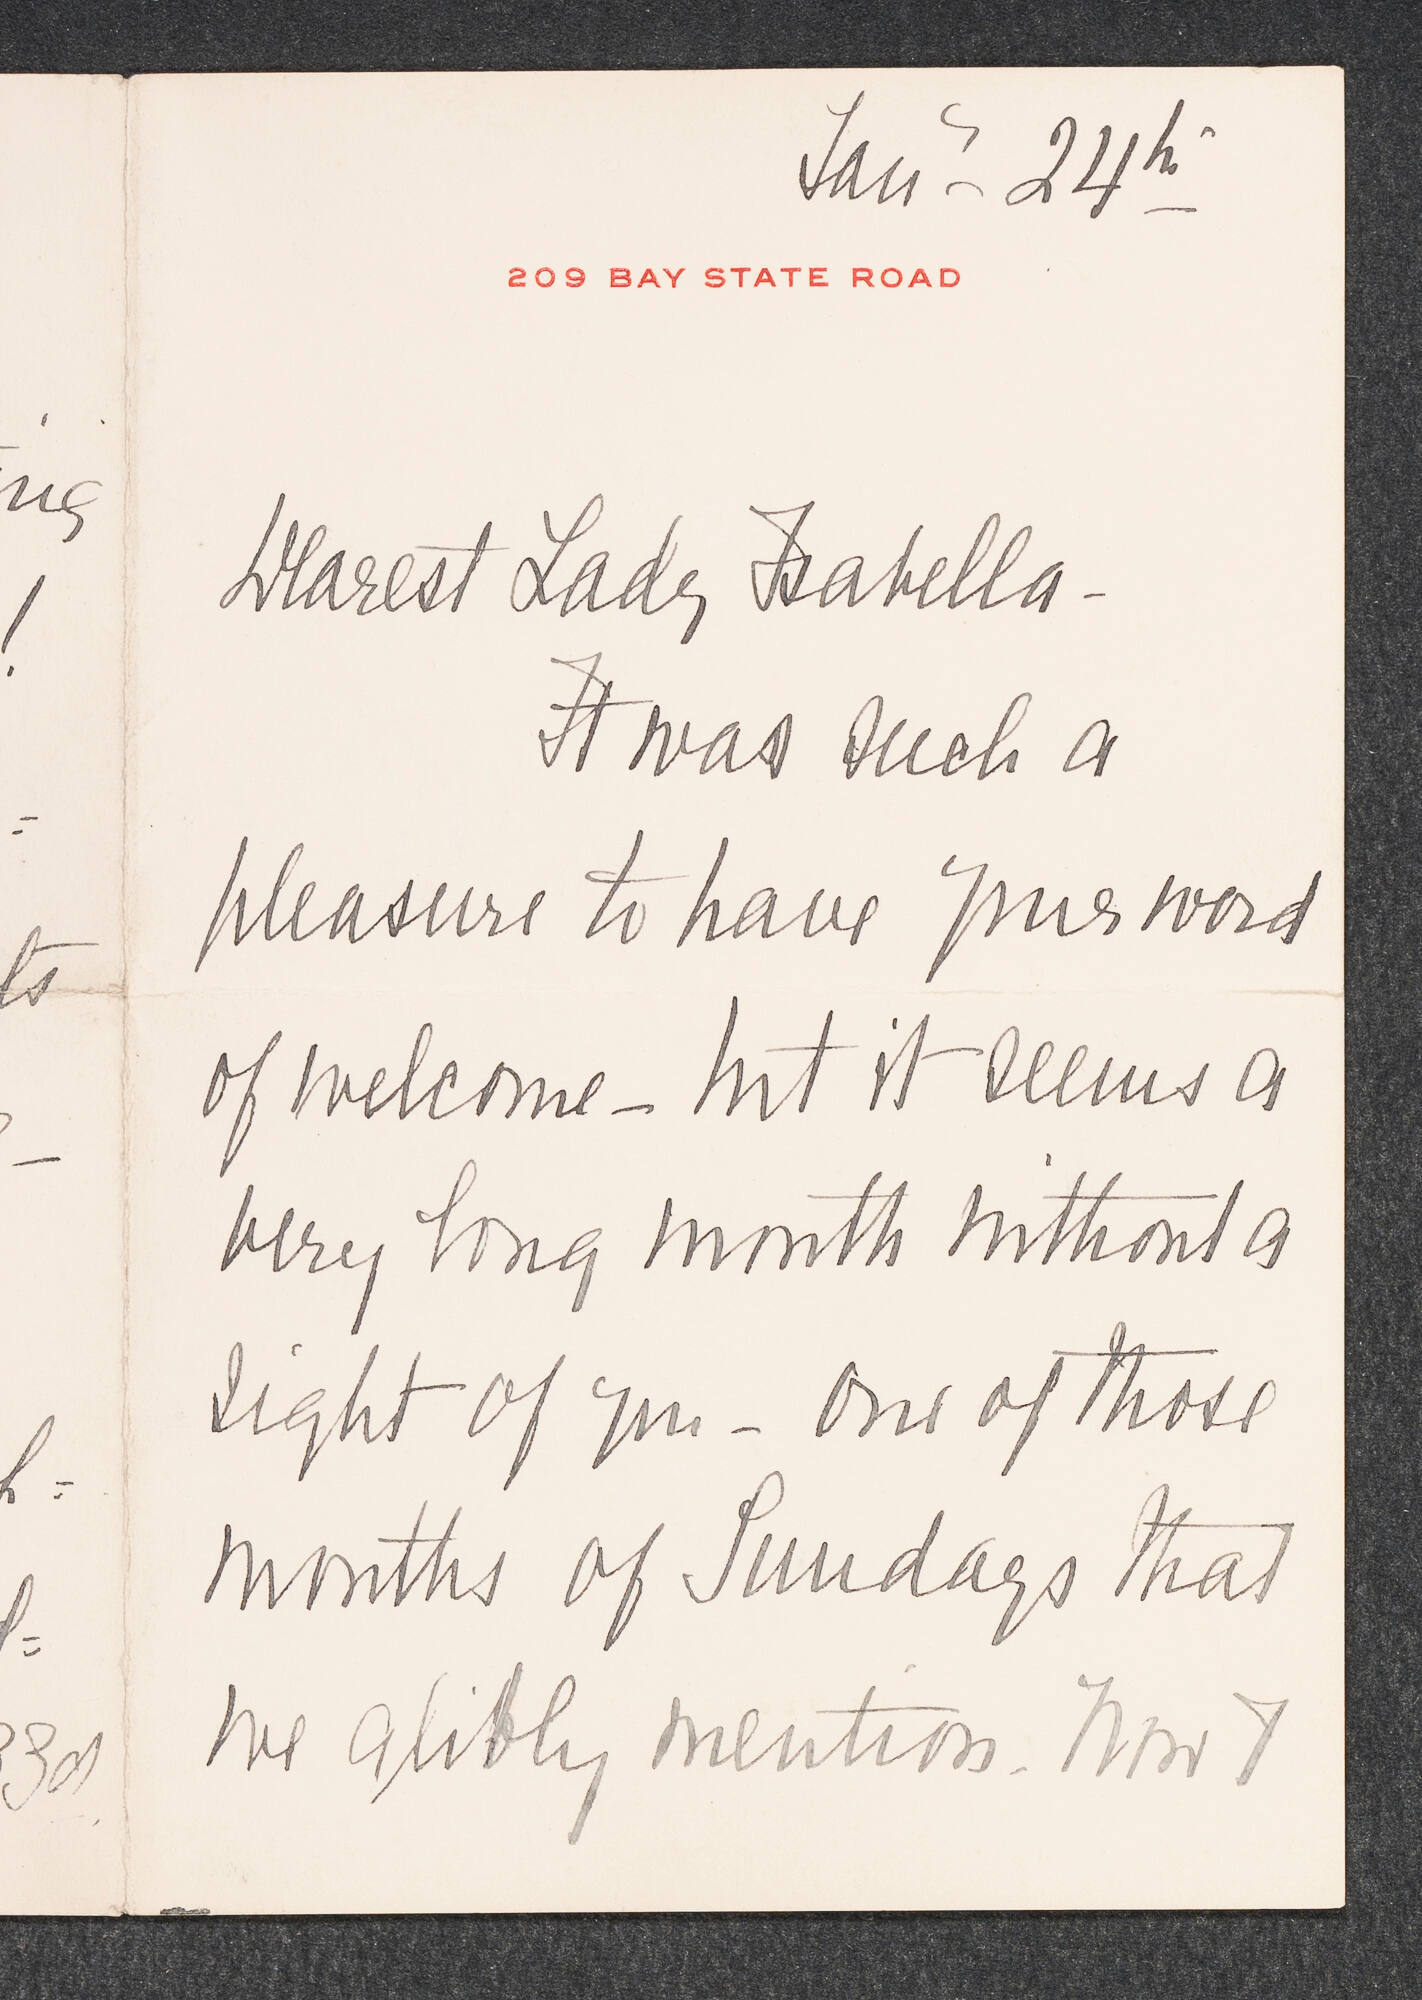 Jan^y - 24^th
209 BAY STATE ROAD
Dearest Lady Isabella -
It was such a
pleasure to have your word
of welcome - but it seems a
very long month without a
sight of you - one of those
months of Sundays that
we glibly mention. Now I
ing
!
=
ts
-
h =
d =
33d